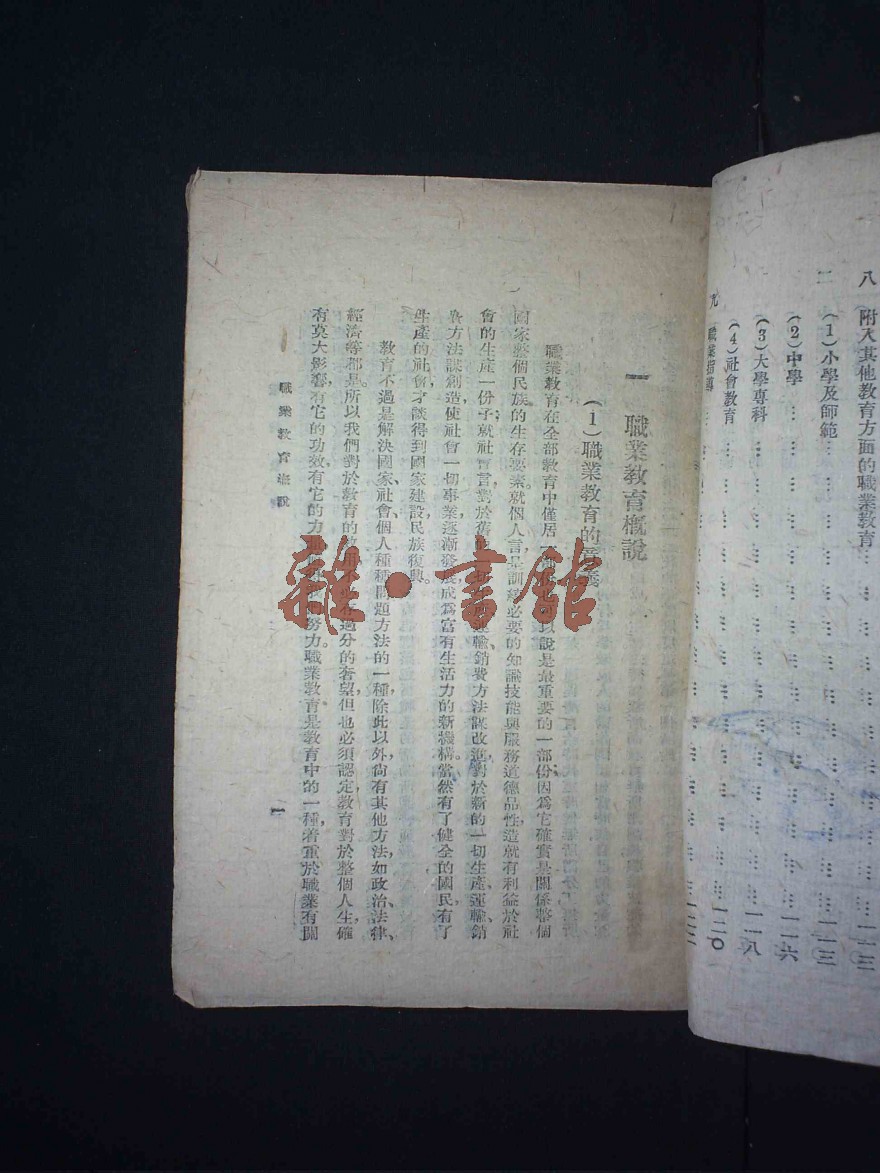 八 附入其他教育方面的職業教育……一二三
(1)小學及師範……一二三
(2)中學……一二六
(3)大學專科……一二八
(4)社會教育……一二〇
九 職業指導……一二
一 職業教育概說
(1)職業教育的意義
職業教育在全部教育中僅居 以說是最重要的一部份因爲它確實是關係整個
國家整個民族的生存要素。就個人言是訓練必要的知識技能與服務道德品性造就有利益於社
會的生產一份子就社會言對於舊 運輸銷費方法謀改進對於新的一切生產、運輸銷
費方法謀創造使社會一切事業逐漸發展成爲富有生活力的新機構當然有了健全的國民有了
生產的社會才談得到國家建設民族復興。
教育不過是解決國家、社會、個人種種問題方法的一種,除此以外,尙有其他方法,如政治、法律、
經濟等都是。所以我們對於教育的 過分的奢望,但也必須認定,教育對於整個人生,確
有莫大影響,有它的功效,有它的力 努力。職業教育是教育中的一種,着重於職業有關
職業教育概說
一
雜·書館